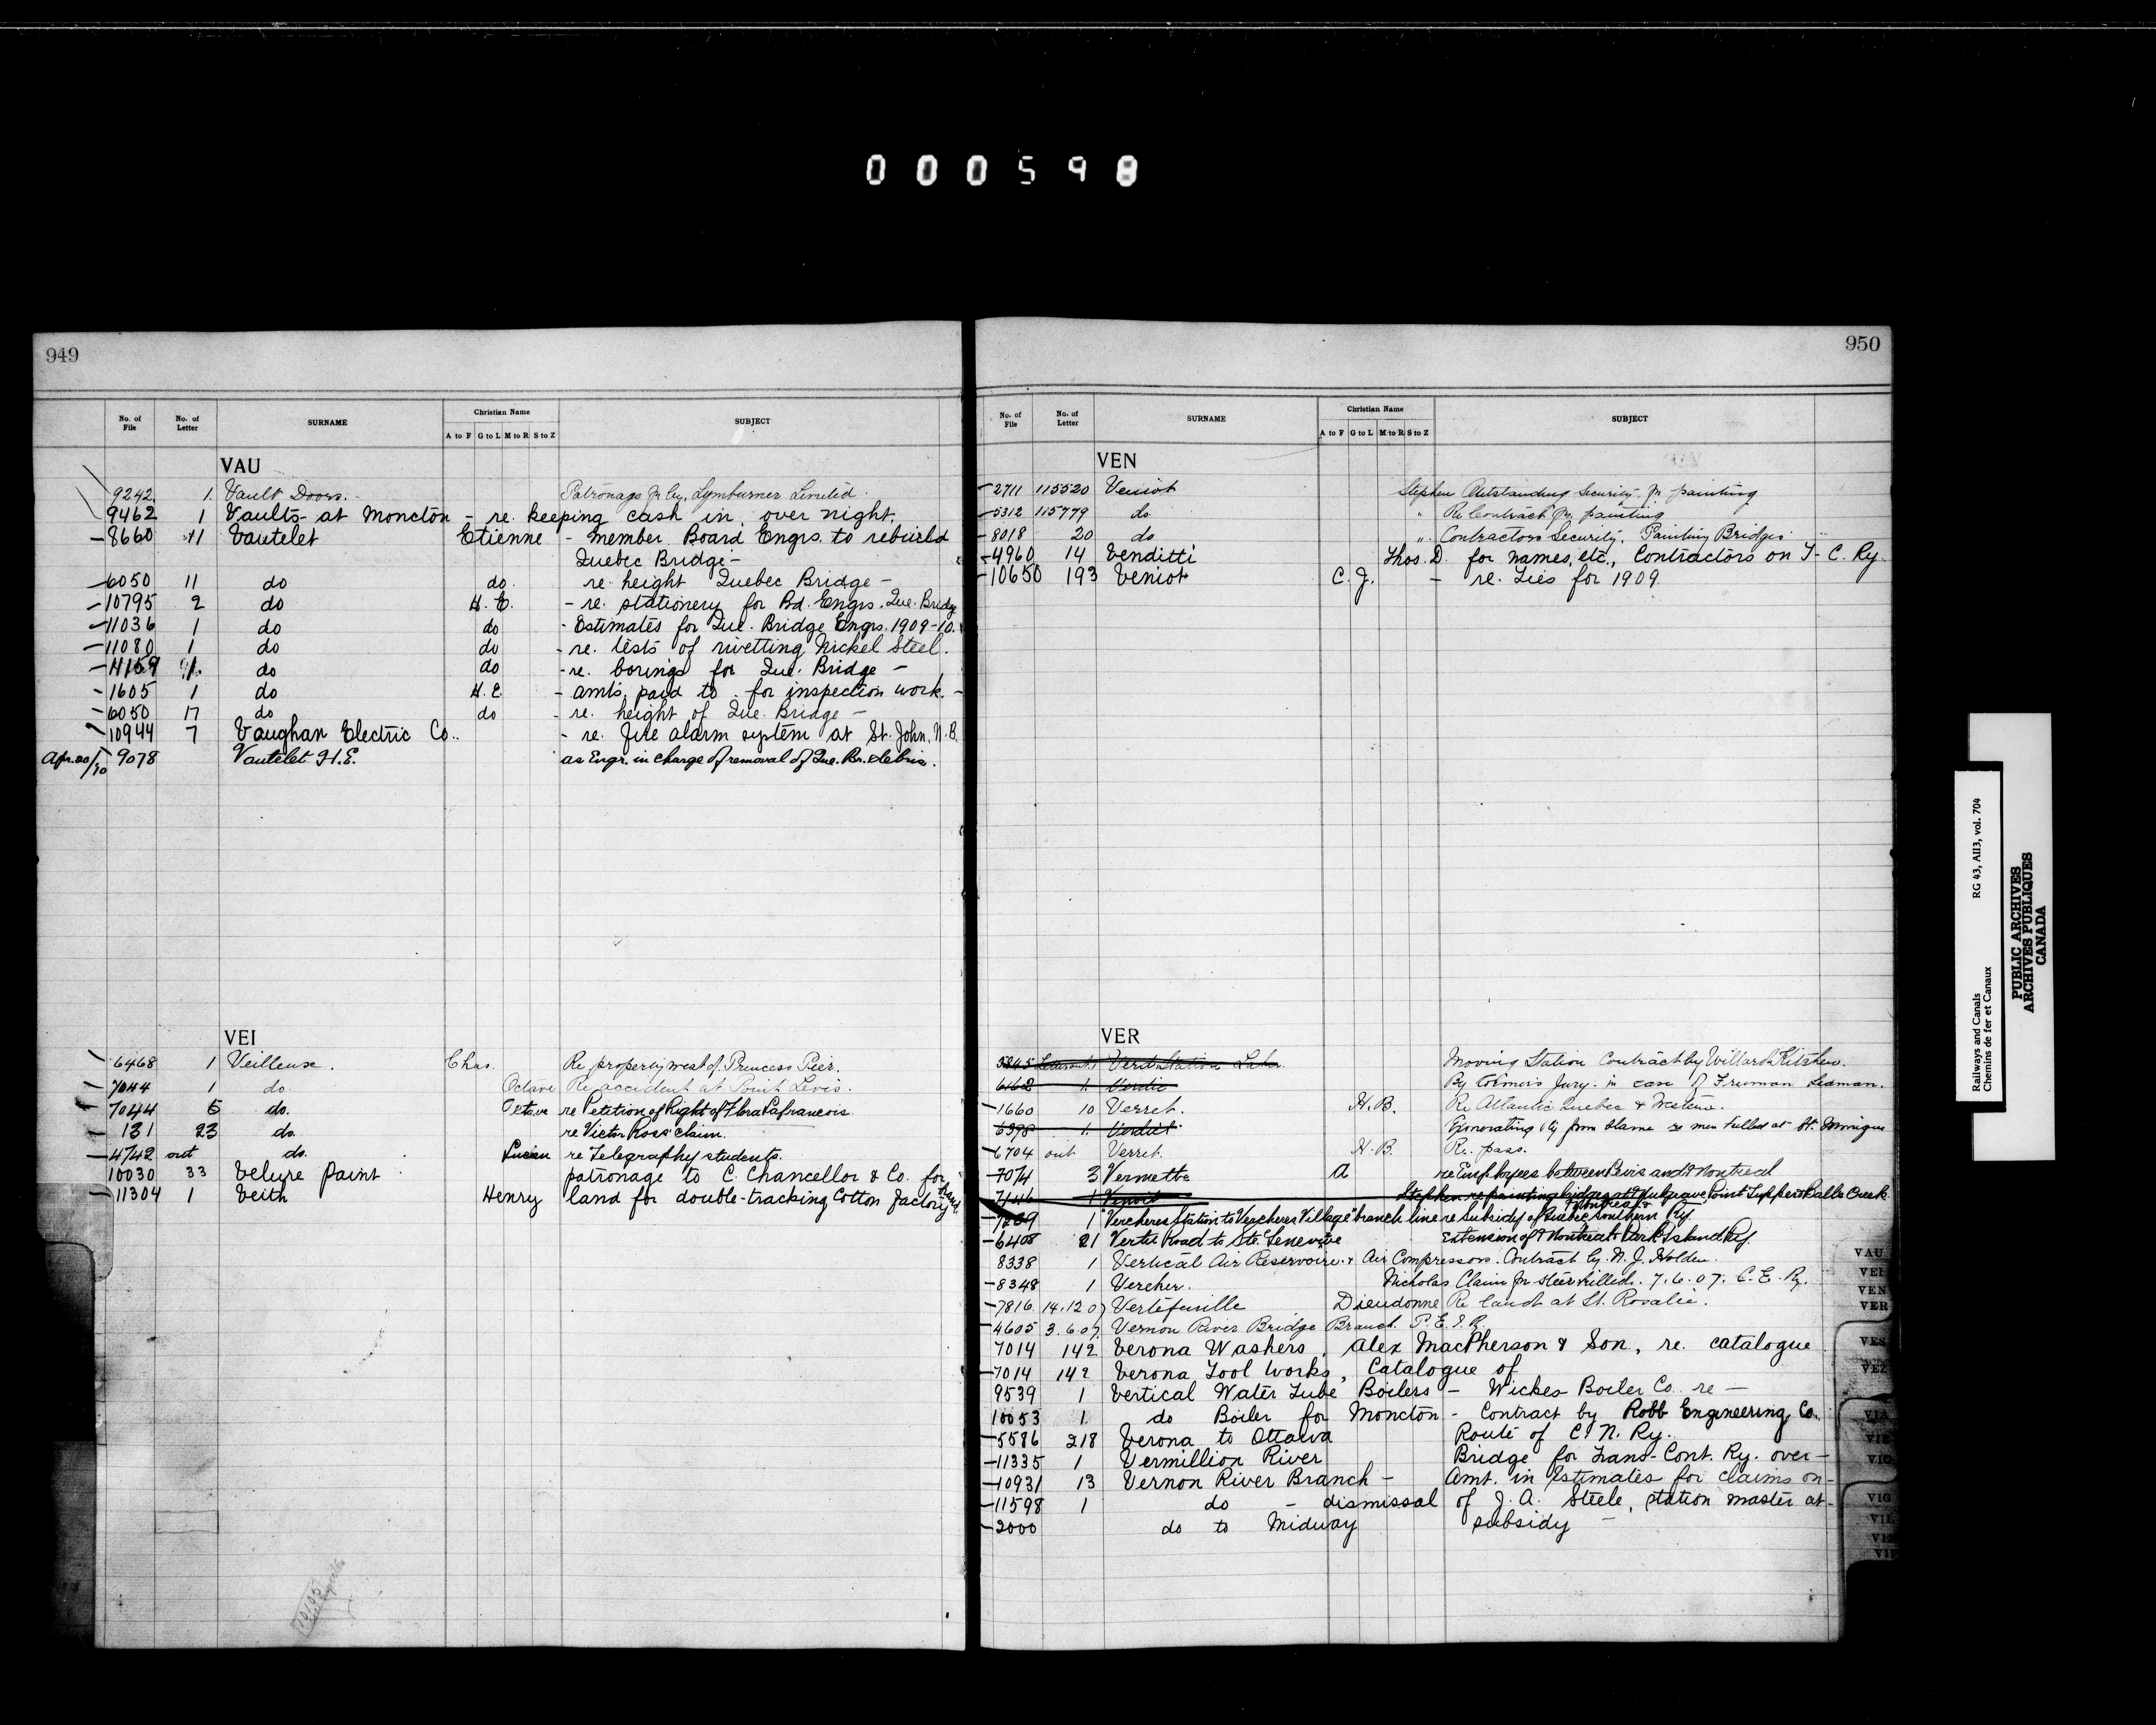 000598
949
No. of File No. of Letter SURNAME Christian Name SUBJECT
A to F G to L M to R S to Z
VAU
9242 1. Vault Doors. Patronage for by. Lymburner Limited.
9462 1 Vaults at Moncton - re. keeping cash in, over night.
8660 41 Vautelet Etienne - member Board Engrs. to rebuild
Quebec Bridge -
6050 11 do do. re. height Quebec Bridge -
10795 2 do H. E. - re. stationery for Bd. Engrs. Que. Bridge
11036 1 do do - Estimates for Que. Bridge Engrs. 1909-10.
11080 1 do do - re. tests of rivetting Nickel Steel.
11159 do do - re. borings for Que. Bridge -
1605 1 do H. E. - amts. paid to - for inspection work. -
6050 17 do do - re. height of Que. Bridge -
10944 7 Vaughan Electric Co.. - re. fire alarm system at St. John, N.B.
Apr. 20/10 9078 Vautelet H.E. as Engr. in charge of removal of Que. Br. debris.
VEI
6468 1 Veilleuse. Chas. Re property west of Princess Pier.
7044 1 do. Octave Re accident at Point Levis.
7044 5 do. Octave re Petition of Right of Flora Lafrancois
131 23 do. re Victor Ross' claim.
4742 out do. Lucien re Telegraphy students.
10030 33 Velure Paint patronage to C. Chancellor & Co. for
11304 1 Veith Henry land for double-tracking Cotton Factory
950
No. of File No. of Letter SURNAME Christian Name SUBJECT
A to F G to L M to R S to Z
VEN
2711 115520 Veniot Stephen Outstanding Security for painting
5312 115779 do " Re Contract for painting
8018 20 do " Contractors Security. Painting Bridges.
4960 14 Venditti Thos. D. for names, etc., Contractors on T-C. Ry.
10650 193 Veniot C. J. - re. Ties for 1909
VER
5845 1 Verd Station Lake Moving Station Contract by Willard Kitchen.
6162 1. Verdic By Coroner's Jury in case of Freeman Seaman.
1660 10 Verret. H.B. Re Atlantic Quebec & Western.
6398 1. Verdict Exonerating Ry from blame re men killed at St. Monique
6704 out Verret. H.B. Re. pass.
7074 3 Vermette A re Employees between Levis and Montreal
7146 1 Veniot Stephen re painting bridges at Mulgrave, Point Tupper & Balls Creek
7289 1 "Vercheres Station to Vercheres Village" branch line re Subsidy of Quebec Montreal & Southern Ry.
6408 21 Vertu Road to Ste. Genevieve Extension of Montreal Park & Island Ry.
8338 1 Vertical Air Reservoirs & Air Compressors. Contract by N. J. Holden.
8348 1 Vercher. Nicholas Claim for steer killed. 7.6.07. C. E. Ry.
7816 14.12.07 Vertefeuille Dieudonne Re land at St. Rosalie.
4605 3.6.07. Vernon River Bridge Branch. P. E. I. R.
7014 142 Verona Washers, Alex MacPherson & Son, re. catalogue
7014 142 Verona Tool Works, Catalogue of
9539 1 Vertical Water Tube Boilers - Wickes Boiler Co. re -
10053 1. do Boiler for Moncton - Contract by Robb Engineering Co.
5586 218 Verona to Ottawa Route of C. N. Ry.
11335 1 Vermillion River Bridge for Trans-Cont. Ry. over -
10931 13 Vernon River Branch - Amt. in Estimates for claims on -
11598 1 do - dismissal of J. A. Steele, station master at -
2000 do to Midway subsidy -
VAU
VEI
VEN
VER
VES
VEZ
VIA
VIG
Railways and Canals RG 43, AII3, vol. 704
Chemins de fer et Canaux
PUBLIC ARCHIVES
ARCHIVES PUBLIQUES
CANADA